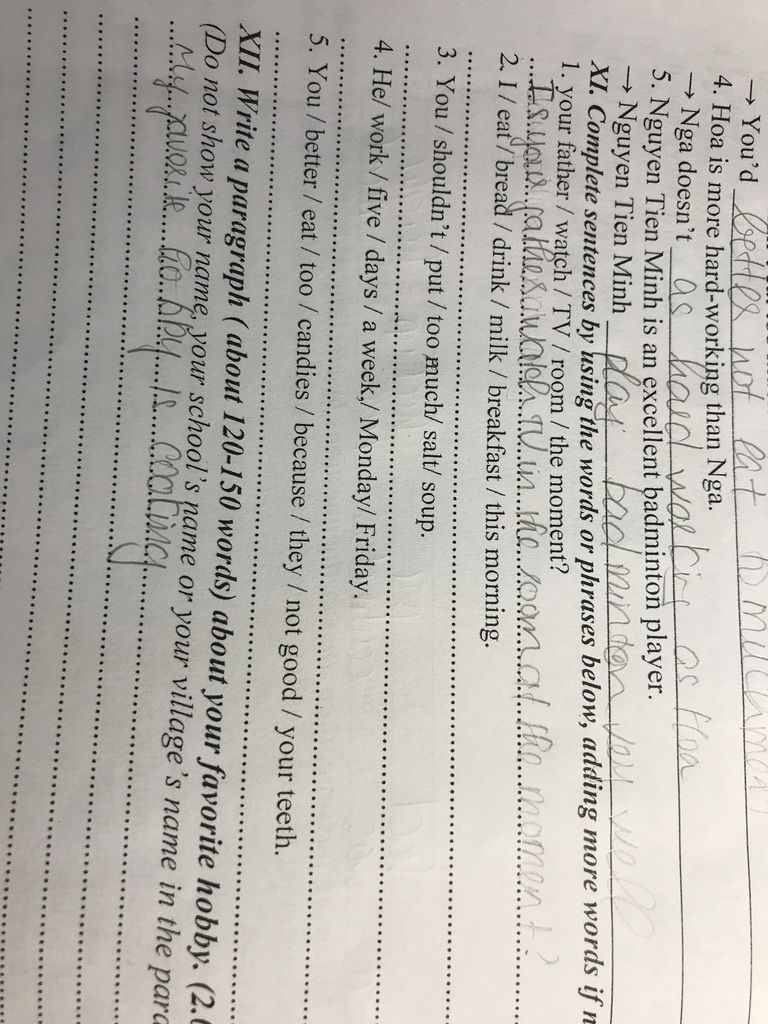 → You'd better not eat to much meat
4. Hoa is more hard-working than Nga.
→ Nga doesn't as hard working as Hoa
5. Nguyen Tien Minh is an excellent badminton player.
→ Nguyen Tien Minh play badminton very well
XI. Complete sentences by using the words or phrases below, adding more words if n
1. your father / watch / TV / room / the moment?
Is your father watch TV in the room at the moment?
2. I / eat / bread / drink / milk / breakfast / this morning.
3. You / shouldn't / put / too much/ salt/ soup.
4. He/ work / five / days / a week,/ Monday/ Friday
5. You / better / eat / too / candies / because / they / not good / your teeth.
XII. Write a paragraph ( about 120-150 words) about your favorite hobby. (2.
(Do not show your name, your school's name or your village's name in the para
My favorite hobby is